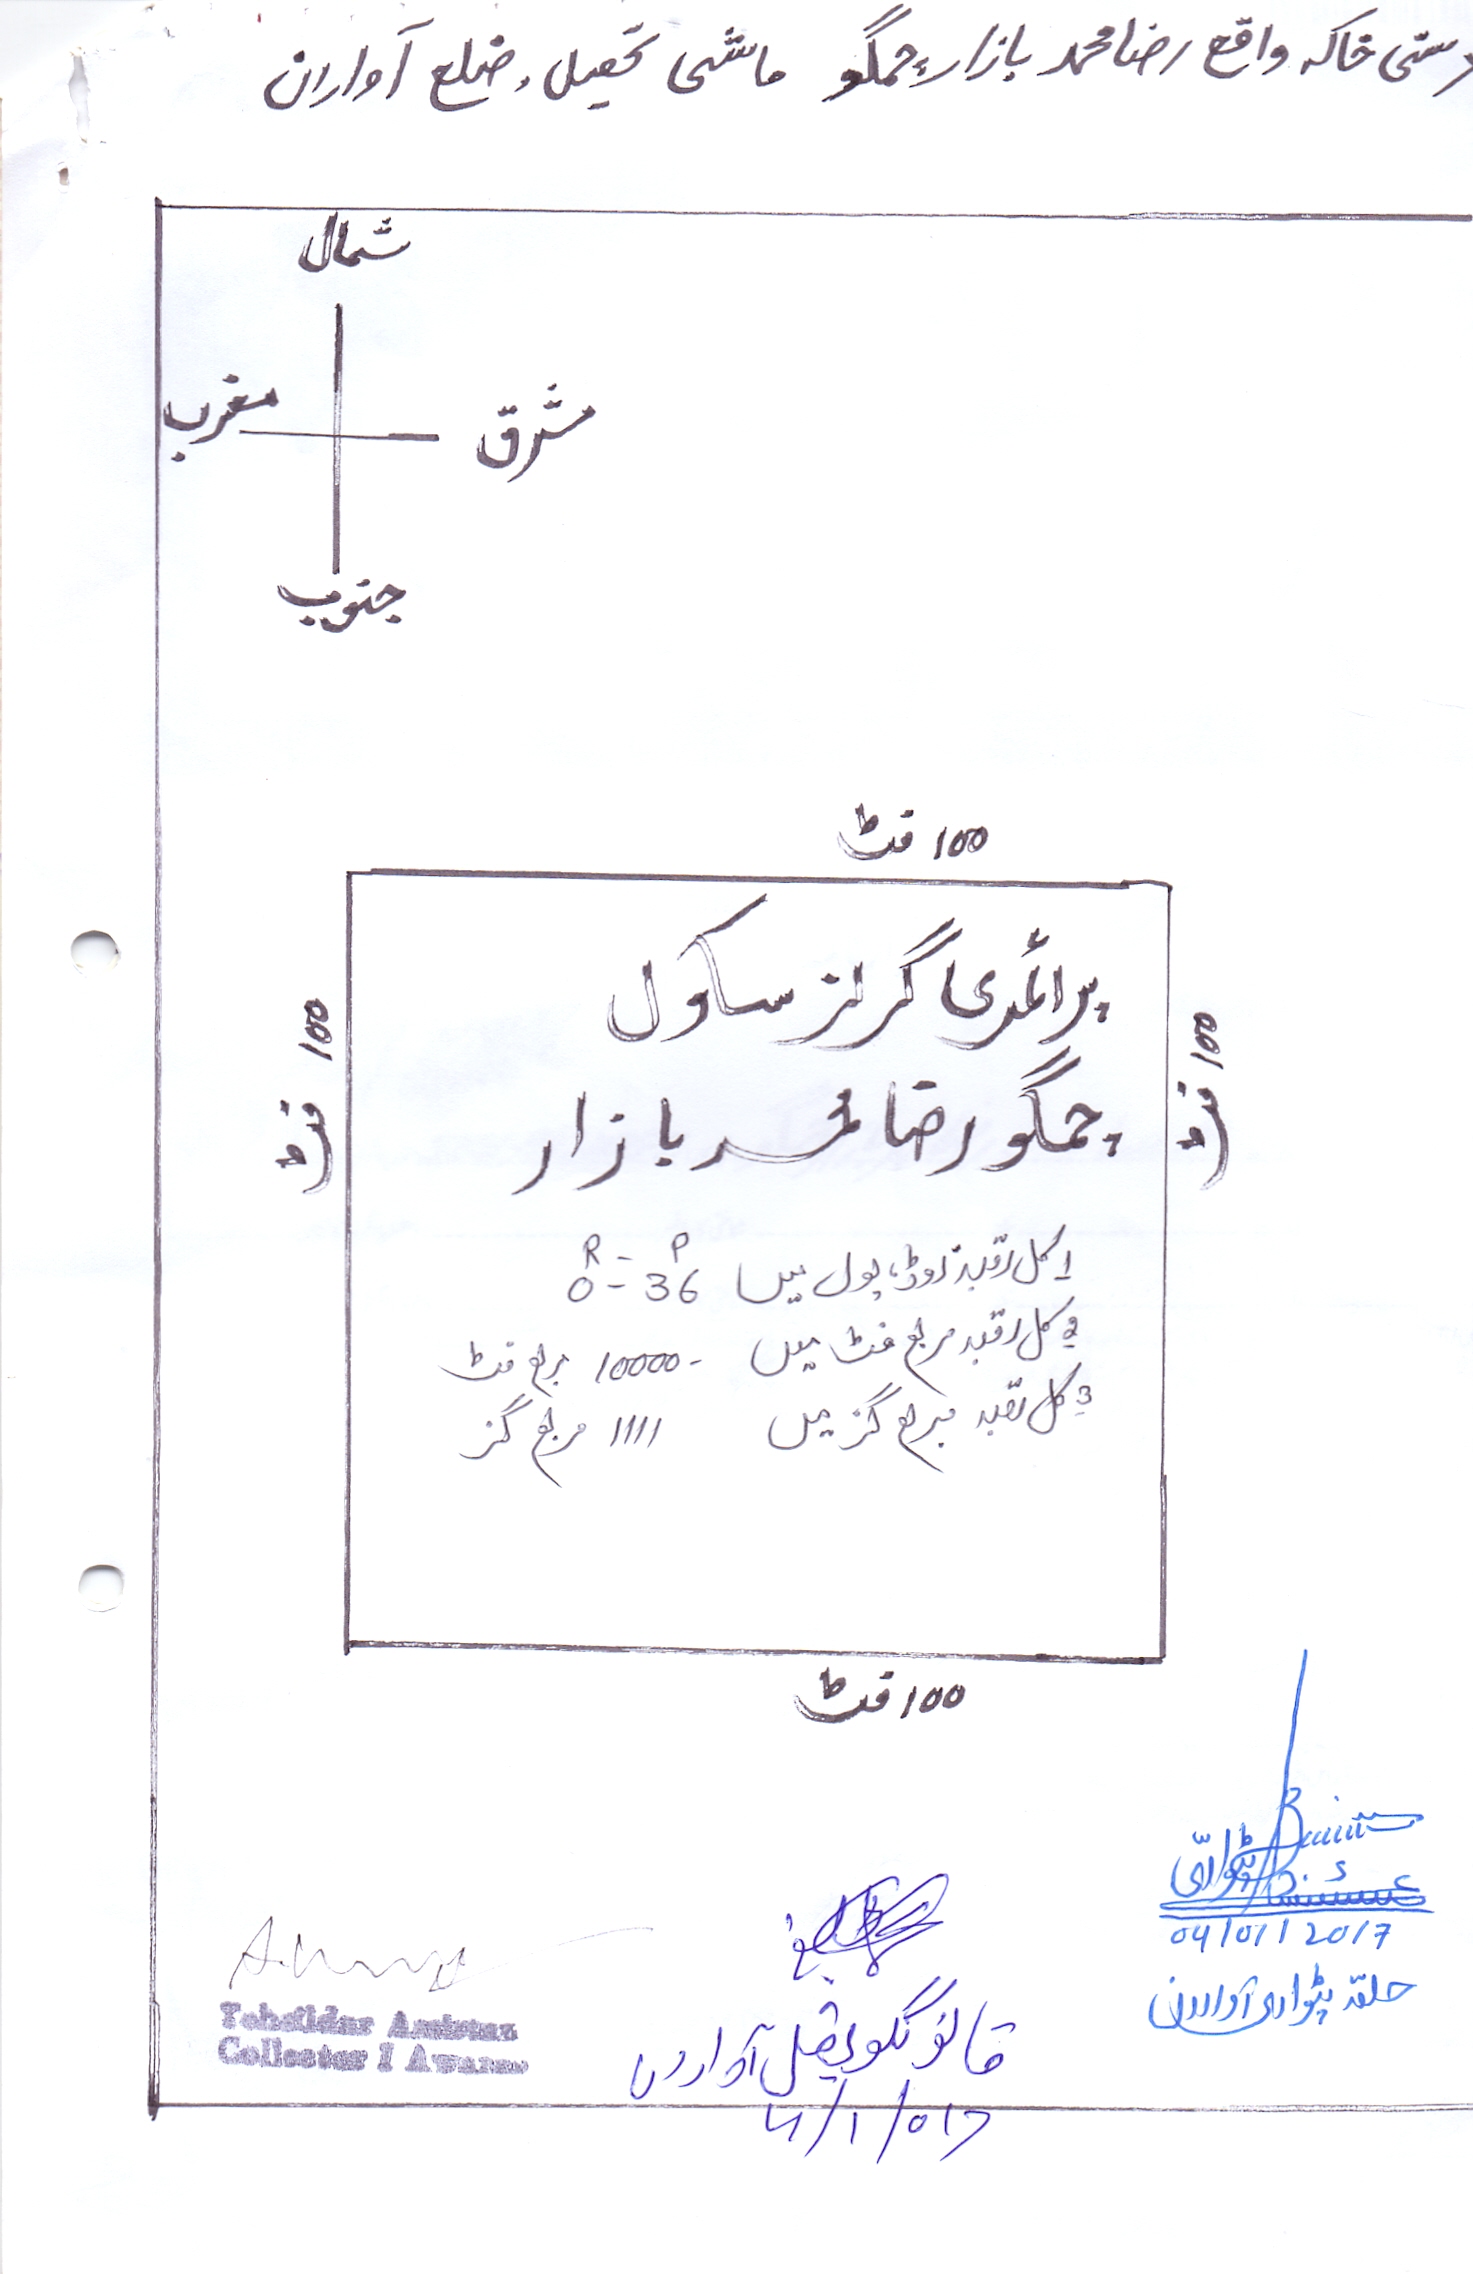 دستی خاکہ واقع رضا محمد بازار، چمگو ماشی تحصیل و ضلع آواران
شمال
مغرب
مشرق
جنوب
100 فٹ
100 فٹ
پرائمری گرلز سکول
چمگو رضا محمد بازار
100 فٹ
R - P
1 کل رقبہ روڈ، پول میں 0 - 36
2 کل رقبہ مربع فٹ میں - 10000 مربع فٹ
3 کل رقبہ مربع گز میں 1111 مربع گز
100 فٹ
پٹواری
04/01/2017
حلقہ پٹواری آواران
قانونگو تحصیل آواران
4/1/017
Tehsildar Assistan
Collector I Awaran